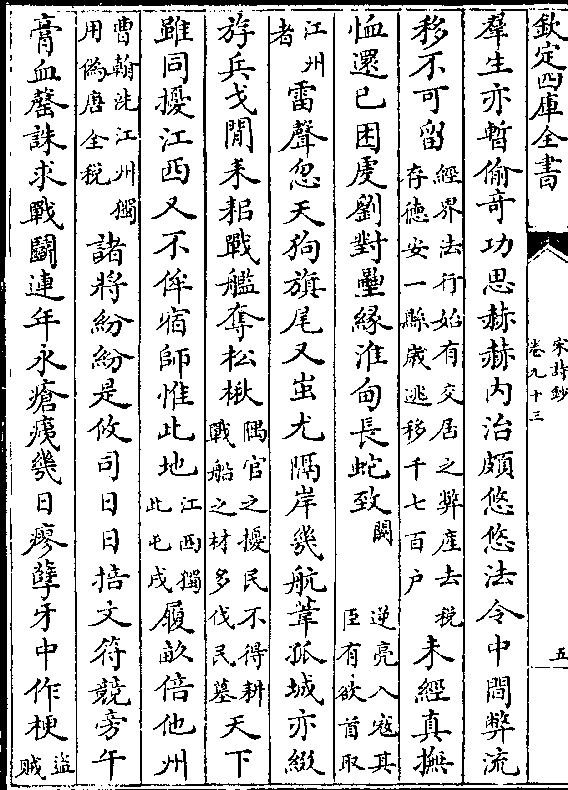 欽定四庫全書
宋詩鈔
卷九十三
五
羣生亦暫偷奇功思赫赫内治頗悠悠法令中間弊流
移不可留經界法行始有交居之弊産去税存德安一縣歳逃移千七百户未經真撫
恤還已困虔劉對壘縁淮甸長蛇致闕逆亮入宼其臣有欲首取
江州者雷聲忽天狗旗尾又蚩尤隔岸幾航葦孤城亦綴
斿兵戈閒耒耜戰艦奪松楸隅官之擾民不得耕戰船之材多伐民墓天下
雖同擾江西又不侔宿師惟此地江西獨此屯戍履畝倍他州
曹翰洗江州獨用偽唐全税諸將紛紛是攸司日日掊文符競旁午
膏血罄誅求戰鬭連年永瘡痍幾日瘳孽牙中作梗盗賊